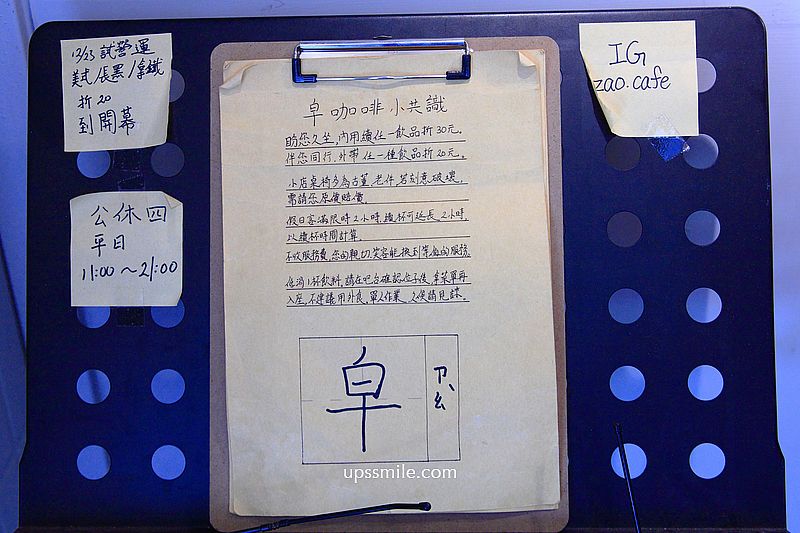 12/25 試營運
美式/長黑/拿鐵
折20
到開幕
公休 四
平日
11:00～21:00
皁 咖啡小共識
助您久坐,內用續任一飲品折30元。
伴您同行,外帶任一種飲品折20元。
小店桌椅多為古董、老件,若刻意破壞,
需請您原價賠償。
假日客滿限時2小時,續杯可延長2小時,
以續杯時間計算。
不收服務費,您的親切笑容能換到等值的服務。
低消1杯飲料,請在吧台確認位子後,拿菜單再
入座,不建議用外食,單人作業,久候請見諒。
皁
ㄗㄠˋ
IG
zao.cafe
upssmile.com